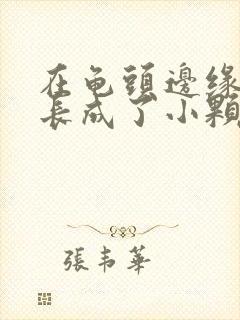 在龟頭邊缘
長成了小顆
張韦華